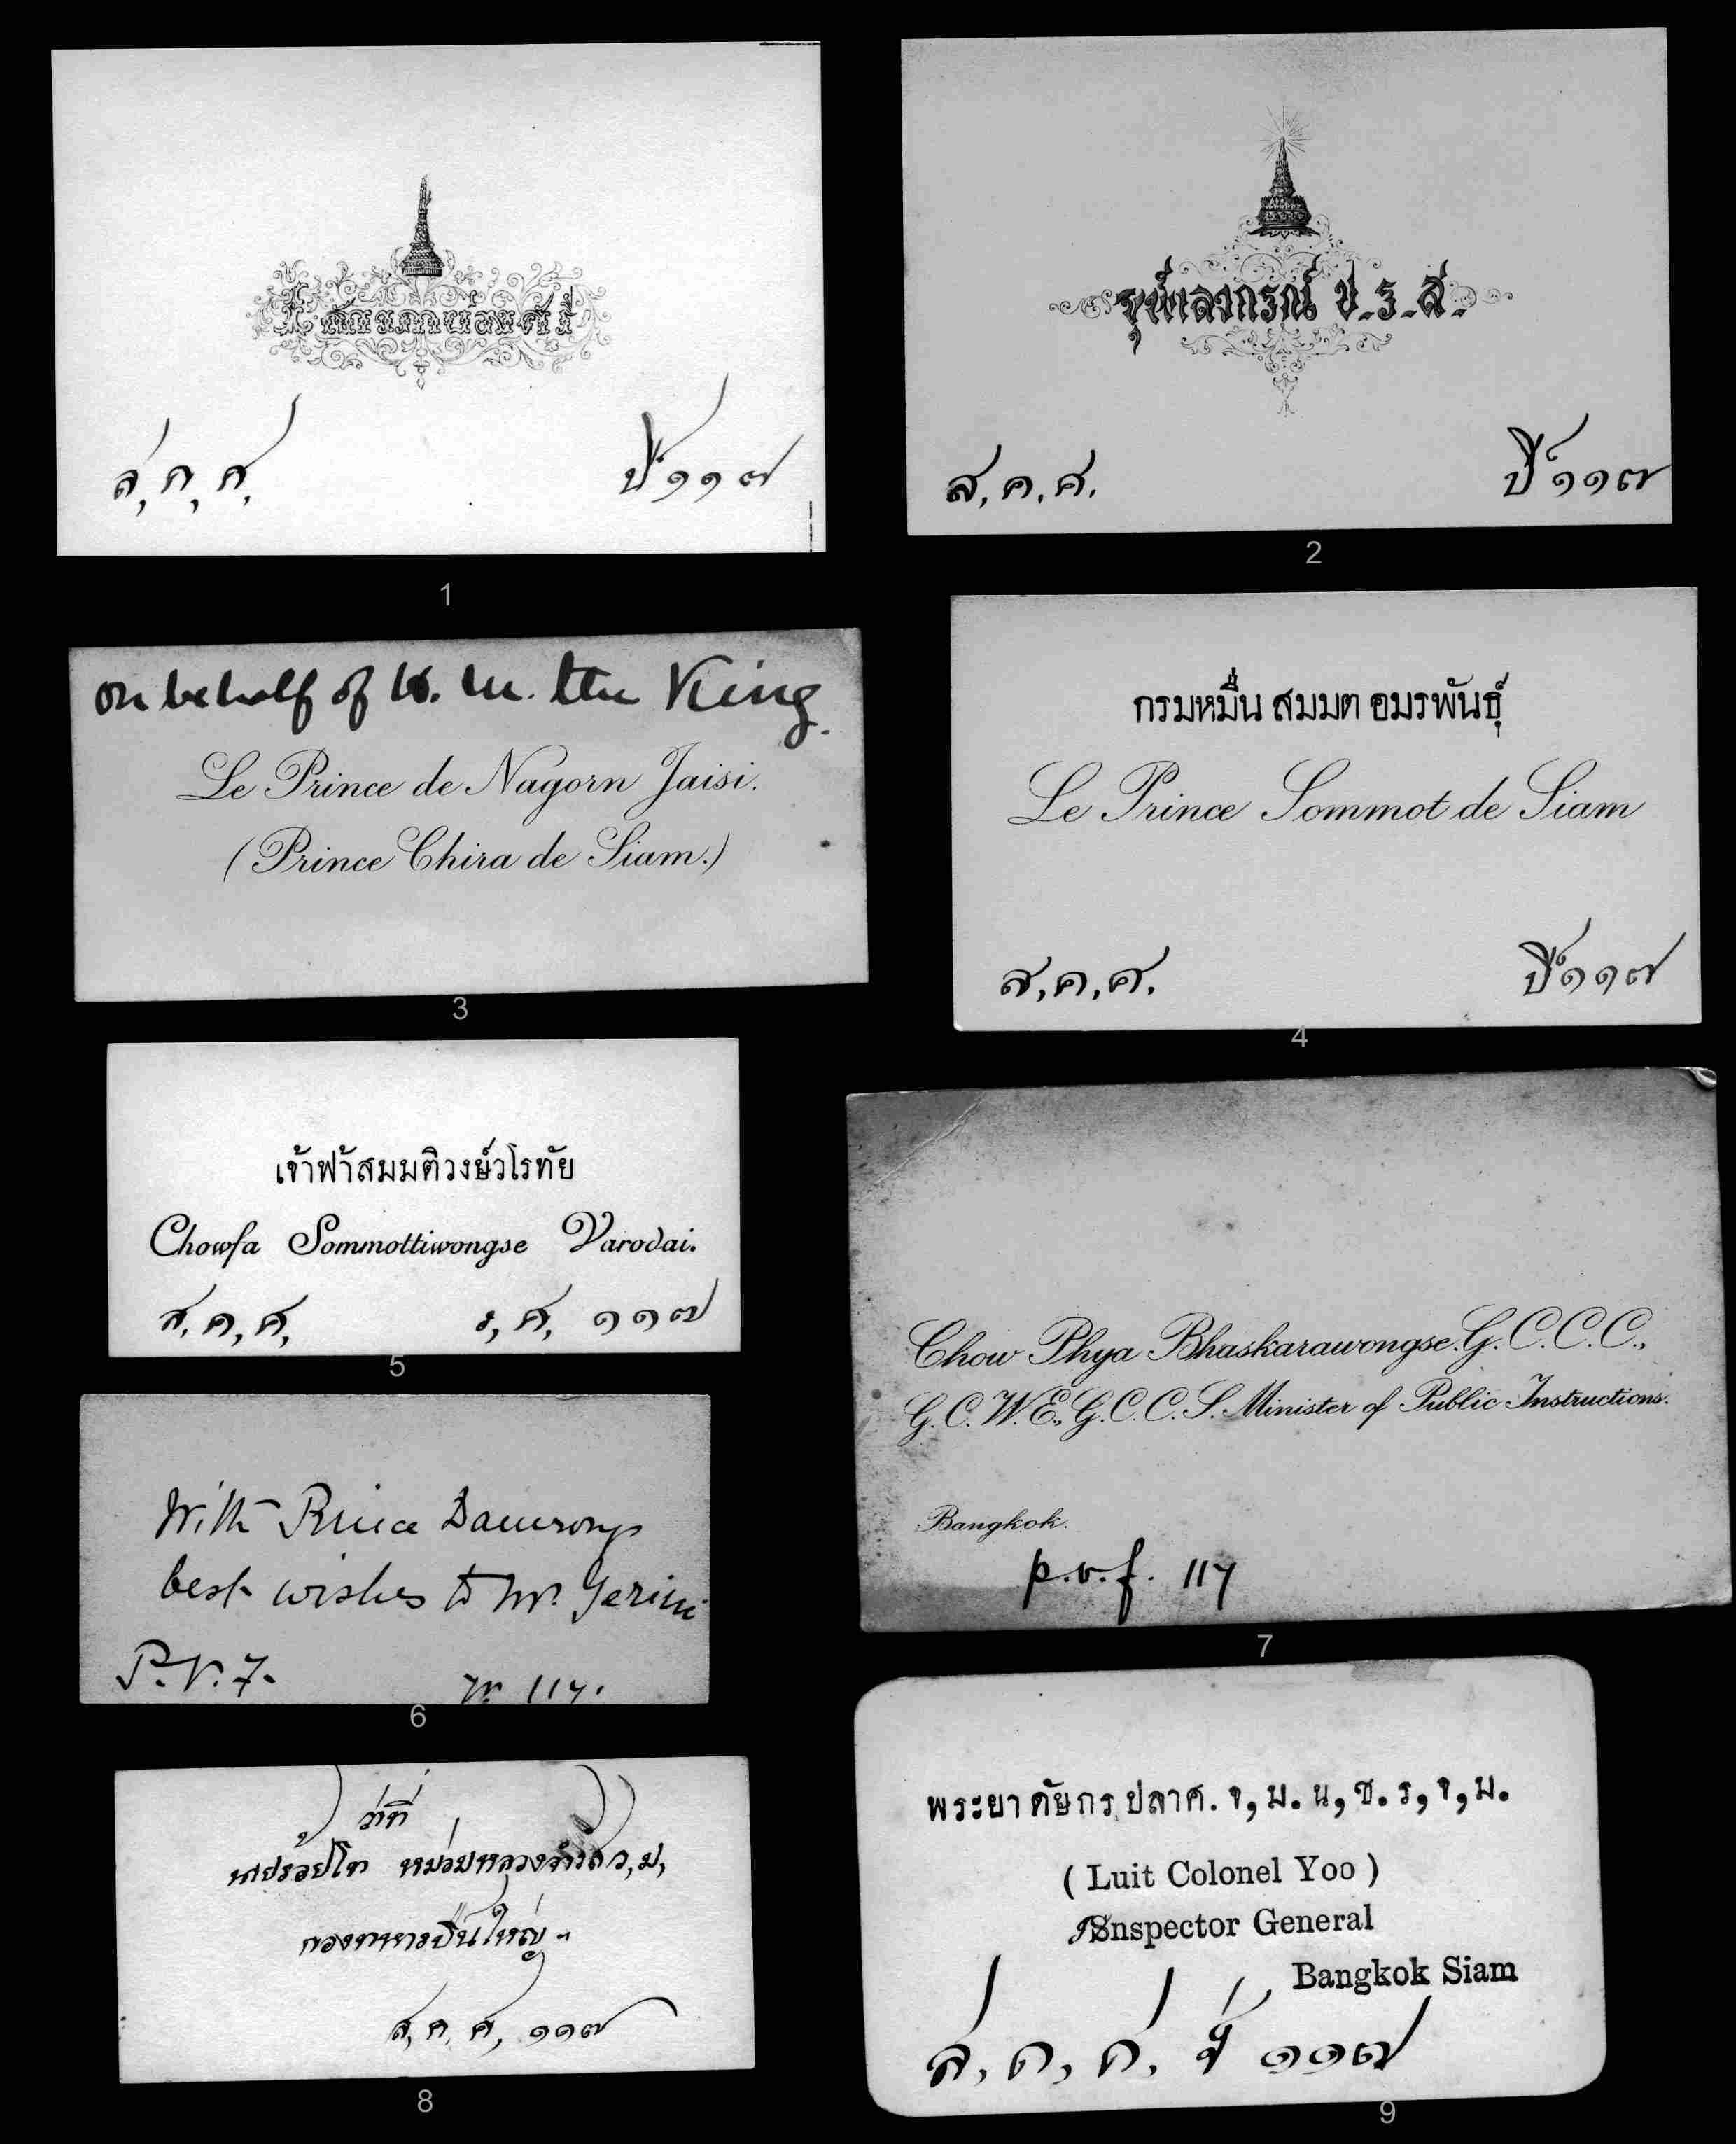 ส,ค,ศ,
ปี ๑๑๗
1
จุฬาลงกรณ์ ป.ร.ส.
ส.ค.ศ.
ปี ๑๑๗
2
on behalf of H. M. the King.
Le Prince de Nagorn Jaisi.
(Prince Chira de Siam.)
3
กรมหมื่น สมมต อมรพันธุ์
Le Prince Sommot de Siam
ส,ค,ศ.
ปี ๑๑๗
4
เจ้าฟ้าสมมติวงษ์วโรทัย
Chowfa Sommottiwongse Varodai.
ส,ค,ศ, ร,ศ, ๑๑๗
5
With Prince Damrongs
best wishes to Mr. Gerini
P.V.F. 117.
6
Chow Phya Bhaskarawongse. G. C. C. C.,
G. C. W. E., G. C. C. S. Minister of Public Instructions.
Bangkok.
p.v.f. 117
7
ว่าที่
นายร้อยโท หม่อมหลวง ว,ม,
กองทหารปืนใหญ่
ส,ค,ศ, ๑๑๗
8
พระยา ศัยกร ปลาศ. จ, ม. น, ช. ร, จ, ม.
( Luit Colonel Yoo )
Inspector General
Bangkok Siam
ส, ค, ศ, ปี ๑๑๗
9